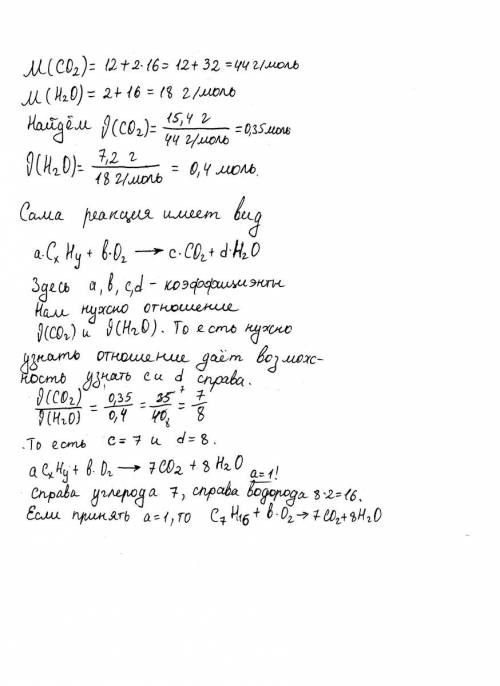 M(CO₂)= 12+2·16= 12+32=44 г/моль
M(H₂O)= 2+16 = 18 г/моль
Найдём ϑ(CO₂)= 15,4 г / 44 г/моль =0,35 моль
ϑ(H₂O)= 7,2 г / 18 г/моль = 0,4 моль.
Сама реакция имеет вид
a·CₓHy + b·O₂ → c·CO₂ + d·H₂O
Здесь a, b, c, d - коэффициенты
Нам нужно отношение
ϑ(CO₂) и ϑ(H₂O). То есть нужно
узнать отношение даёт возмож-
ность узнать c и d справа.
ϑ(CO₂) / ϑ(H₂O) = 0,35 / 0,4 = 35 7 / 40 8 = 7 / 8
.То есть c=7 и d=8.
a CₓHy + b·O₂ → 7CO₂ + 8H₂O a=1!
Справа углерода 7, справа водорода 8·2=16.
Если принять a=1, то C₇H₁₆ + b·O₂ → 7CO₂+8H₂O